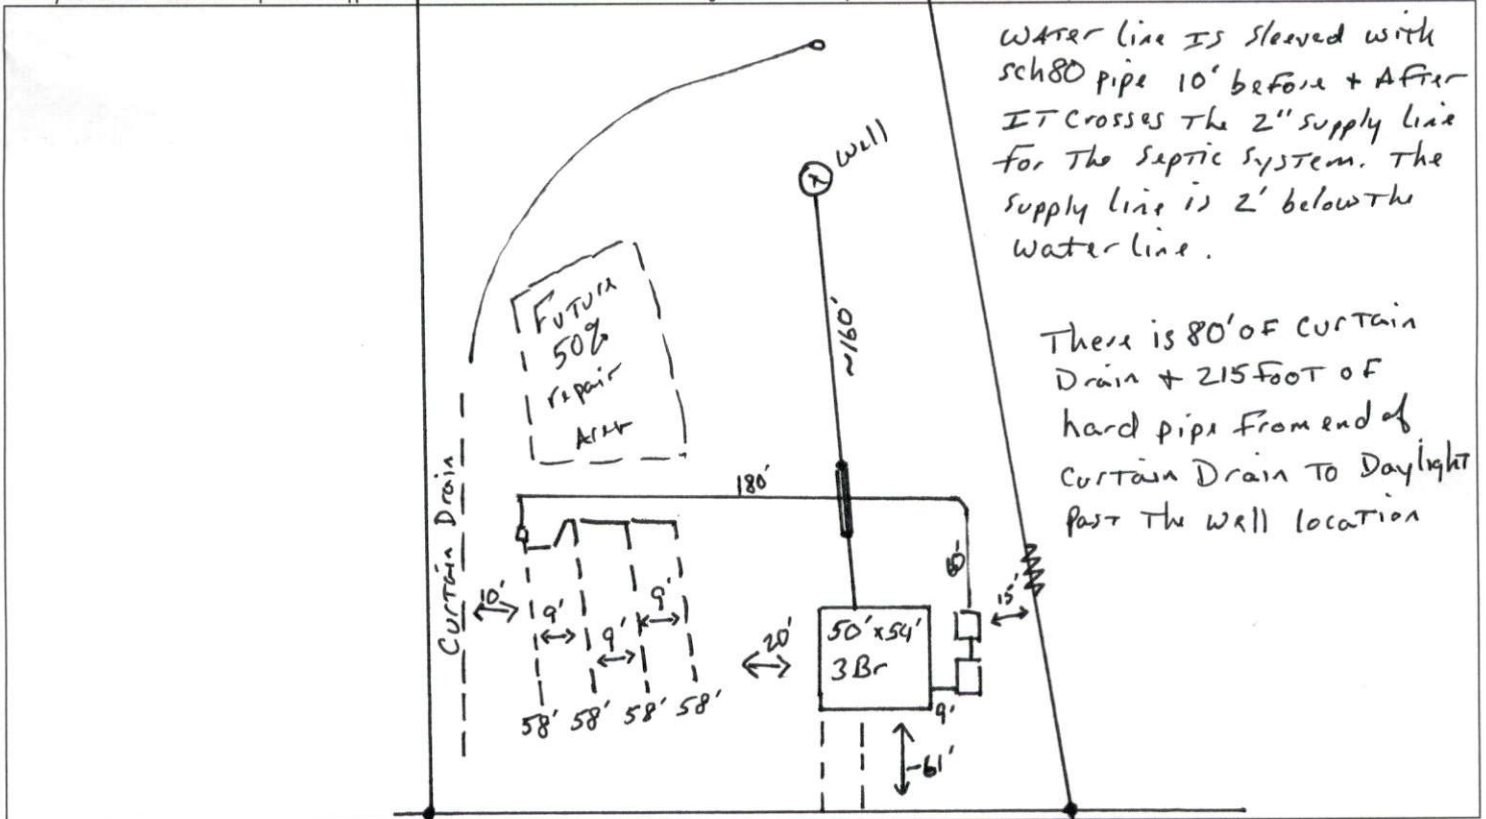 WATER line IS Sleeved with
sch80 pipe 10' before + After
IT Crosses The 2" Supply line
for The Septic System. The
Supply line is 2' below The
Water line.
There is 80' OF Curtain
Drain + 215 FOOT OF
hard pipe from end of
Curtain Drain To Daylight
Past The Well location
Well
~160'
Future
50%
repair
Area
180'
Curtain Drain
10'
9'
9'
9'
58' 58' 58' 58'
20'
50' x 54'
3 Br
15'
9'
~61'